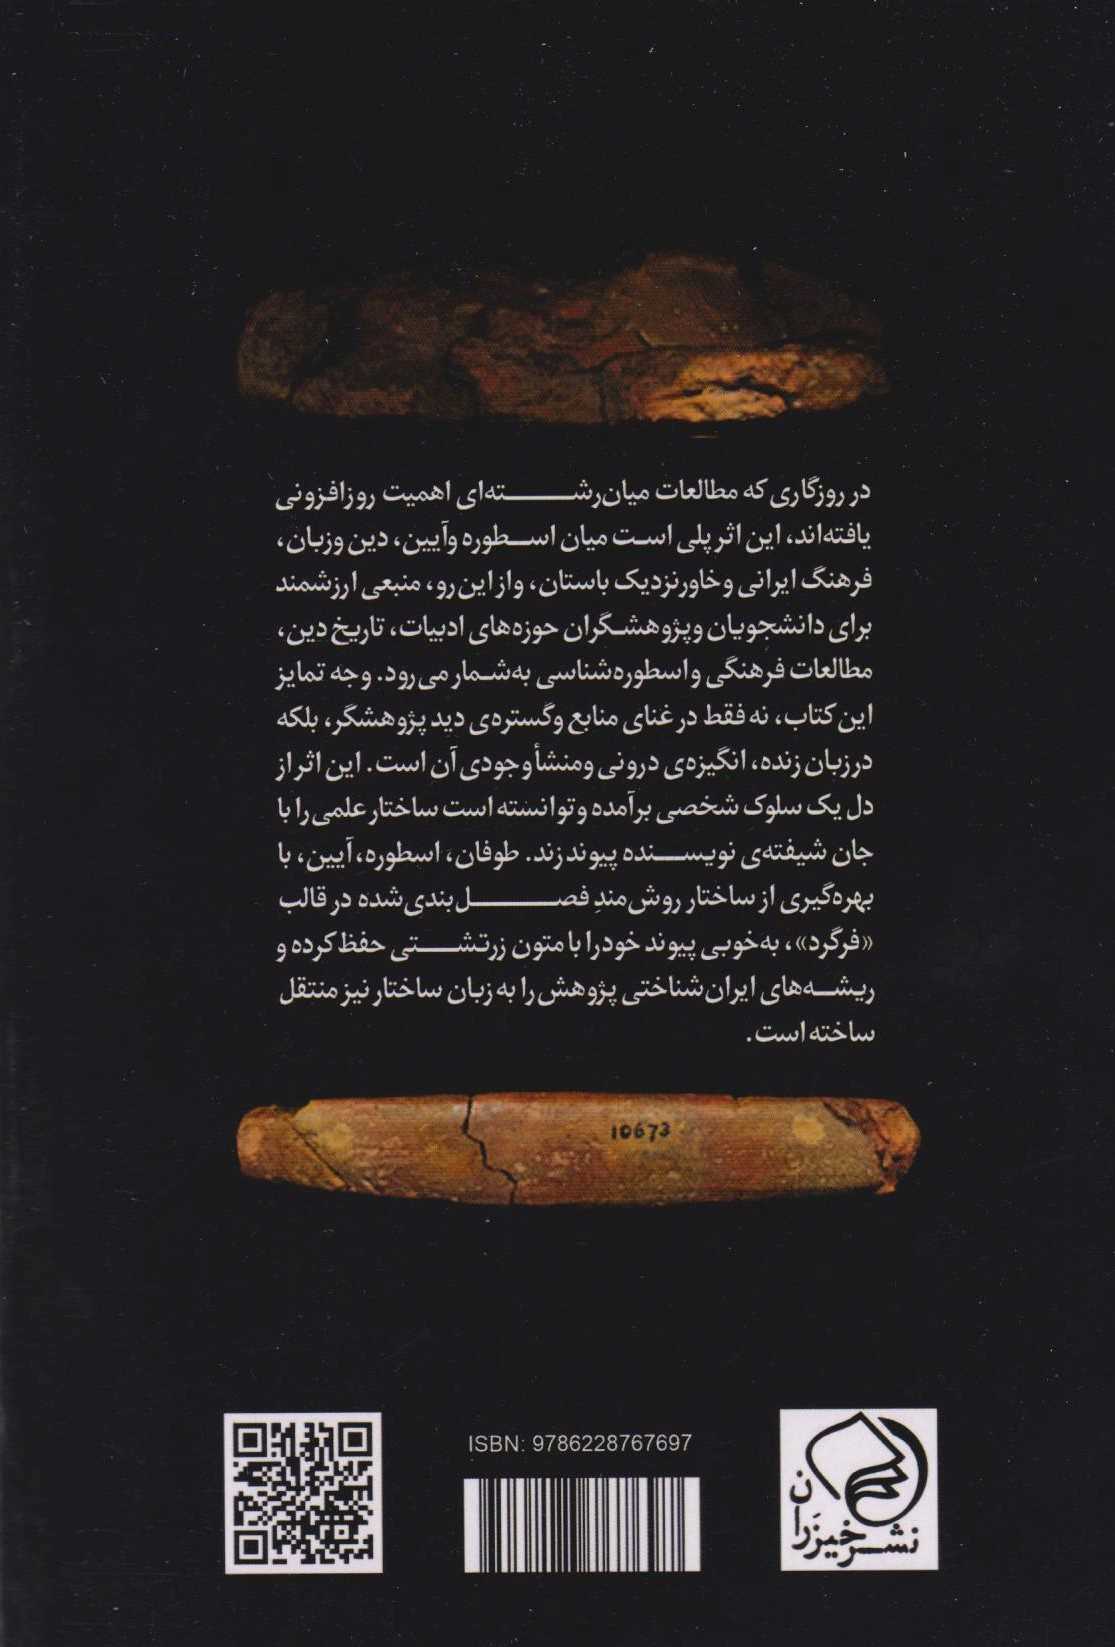 در روزگاری که مطالعات میان‌رشته‌ای اهمیت روزافزونی
یافته‌اند، این اثر پلی است میان اسطوره و آیین، دین و زبان،
فرهنگ ایرانی و خاور نزدیک باستان، و از این رو، منبعی ارزشمند
برای دانشجویان و پژوهشگران حوزه‌های ادبیات، تاریخ دین،
مطالعات فرهنگی و اسطوره‌شناسی به‌شمار می‌رود. وجه تمایز
این کتاب، نه فقط در غنای منابع و گستره‌ی دید پژوهشگر، بلکه
در زبان زنده، انگیزه‌ی درونی و منشأ وجودی آن است. این اثر از
دل یک سلوک شخصی برآمده و توانسته است ساختار علمی را با
جان شیفته‌ی نویسنده پیوند زند. طوفان، اسطوره، آیین، با
بهره‌گیری از ساختار روش‌مندِ فصل‌بندی‌شده در قالب
«فرگرد»، به‌خوبی پیوند خود را با متون زرتشتی حفظ کرده و
ریشه‌های ایران‌شناختی پژوهش را به زبان ساختار نیز منتقل
ساخته است.
10673
ISBN: 9786228767697
نشر خیزَران